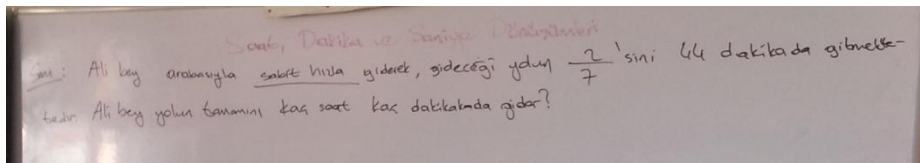 Saat, Dakika ve Saniye Dönüşümleri
Soru: Ali bey arabasıyla sabit hızla giderek, gideceği yolun 2/7'sini 44 dakikada gitmekte-
tedir. Ali bey yolun tamamını kaç saat kaç dakikakada gider?